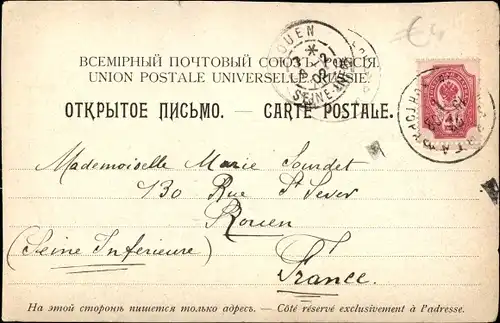 €4
ROUEN
SEINE-INF
ВСЕМІРНЫЙ ПОЧТОВЫЙ СОЮЗЪ. РОССІЯ.
UNION POSTALE UNIVERSELLE. RUSSIE.
ОТКРЫТОЕ ПИСЬМО. — CARTE POSTALE.
Mademoiselle Marie Sourdet
130 Rue St Sever
Rouen
(Seine Inférieure)
France.
На этой сторонѣ пишется только адресъ. — Côté réservé exclusivement à l'adresse.